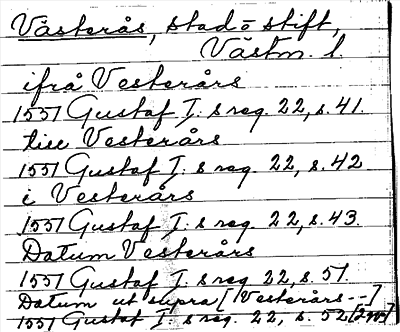 Västerås, stad o stift,
Västm. l.
ifrå Vesterårs
1551 Gustaf I: s reg. 22, s. 41.
till Vesterårs
1551 Gustaf I: s reg. 22, s. 42
i Vesterårs
1551 Gustaf I: s reg. 22, s. 43.
Datum Vesterårs
1551 Gustaf I: s reg. 22, s. 51.
Datum ut supra [Vesterårs--]
1551 Gustaf I: s reg. 22, s. 52